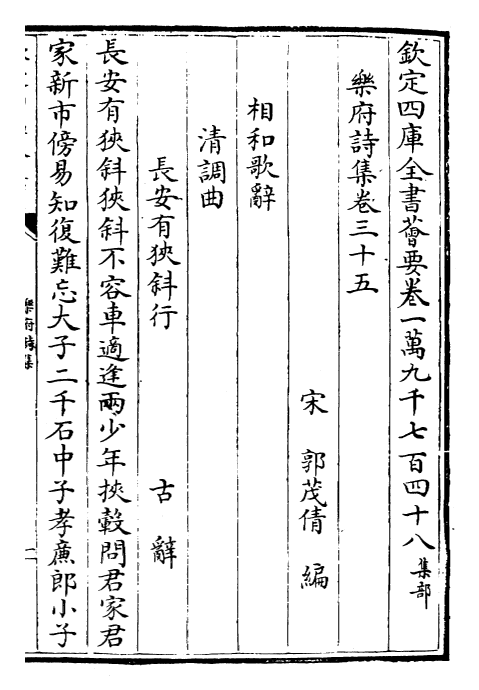 欽定四庫全書薈要卷一萬九千七百四十八 集部
樂府詩集卷三十五
宋 郭茂倩 編
相和歌辭
清調曲
長安有狹斜行 古辭
長安有狹斜狹斜不容車適逢兩少年挾轂問君家君
家新市傍易知復難忘大子二千石中子孝廉郎小子
樂府詩集